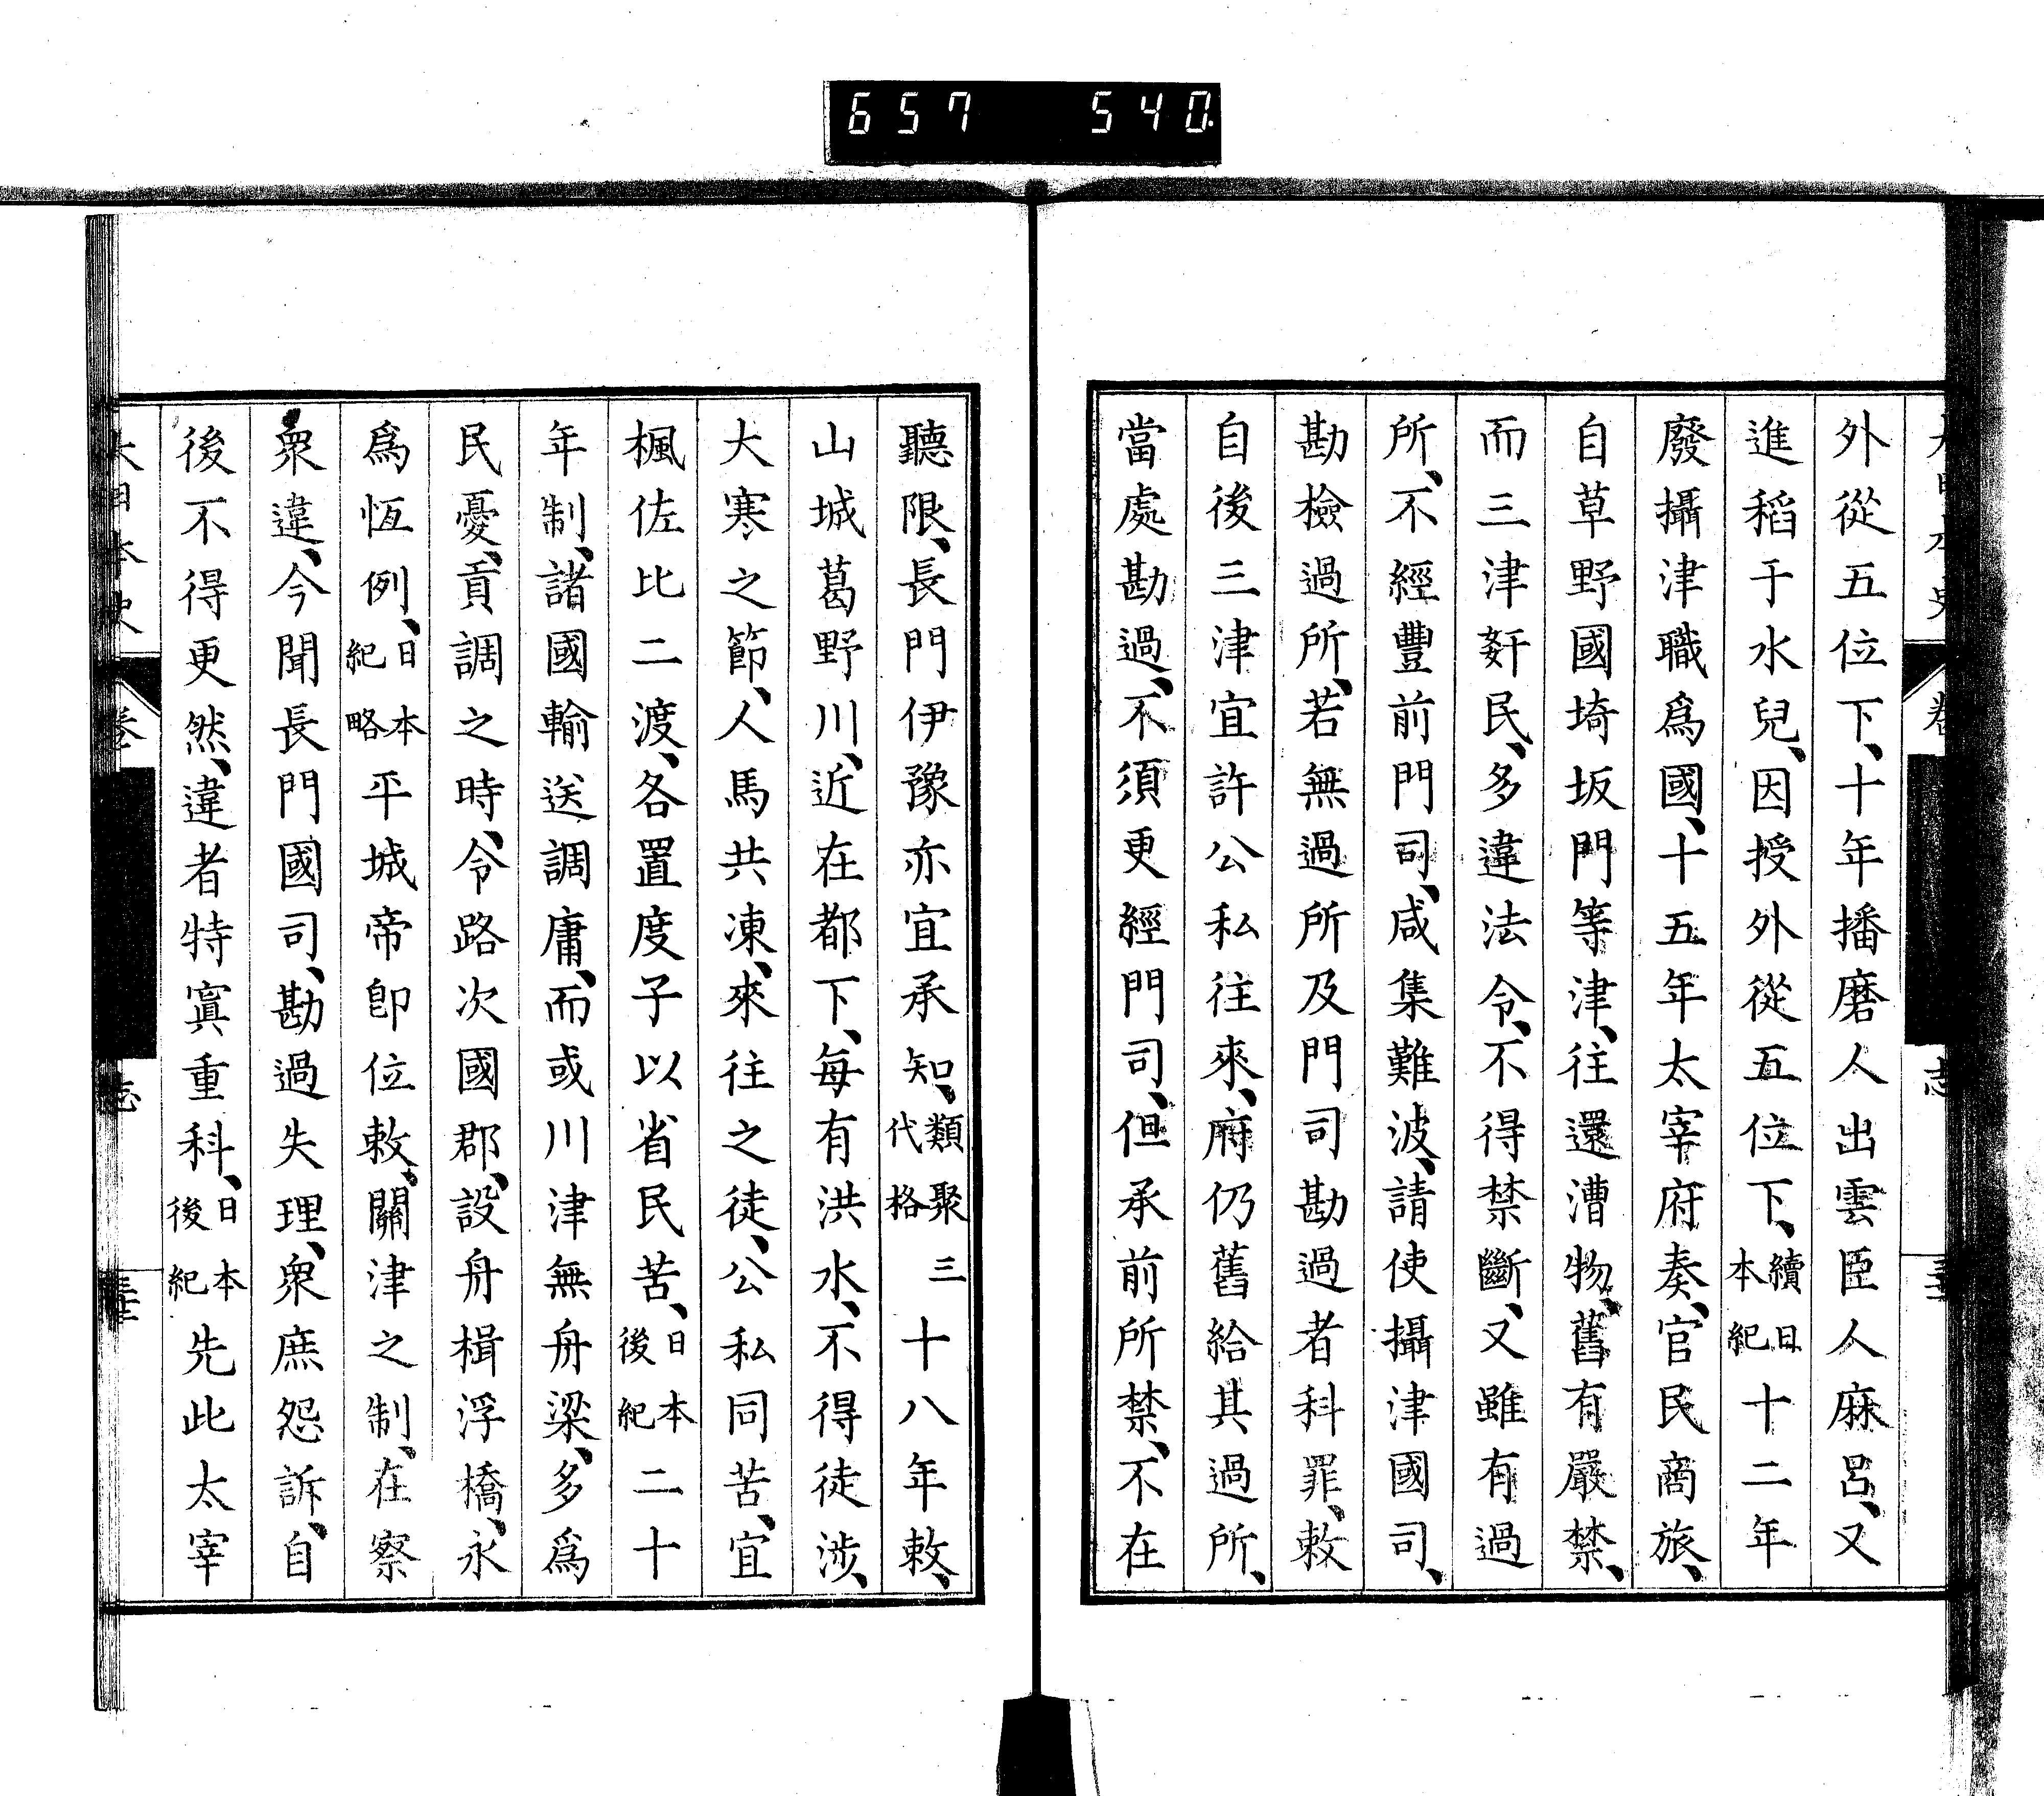 657 540
外從五位下、十年播磨人出雲臣人麻呂、又
進稻于水兒、因授外從五位下、續日本紀十二年
廢攝津職爲國、十五年太宰府奏、官民商旅、
自草野國埼坂門等津、往還漕物、舊有嚴禁、
而三津姧民、多違法令、不得禁斷、又雖有過
所、不經豐前門司、咸集難波、請使攝津國司、
勘檢過所、若無過所及門司勘過者科罪、敕
自後三津宜許公私往來、府仍舊給其過所、
當處勘過、不須更經門司、但承前所禁、不在
聽限、長門伊豫亦宜承知、類聚三代格十八年敕、
山城葛野川、近在都下、每有洪水、不得徒涉、
大寒之節、人馬共凍、來往之徒、公私同苦、宜
楓佐比二渡、各置度子以省民苦、日本後紀二十
年制、諸國輸送調庸、而或川津無舟梁、多爲
民憂、貢調之時、令路次國郡、設舟楫浮橋、永
爲恆例、日本紀略平城帝卽位敕、關津之制、在察
衆違、今聞長門國司、勘過失理、衆庶怨訴、自
後不得更然、違者特寘重科、日本後紀先此太宰
大日本史 卷 志